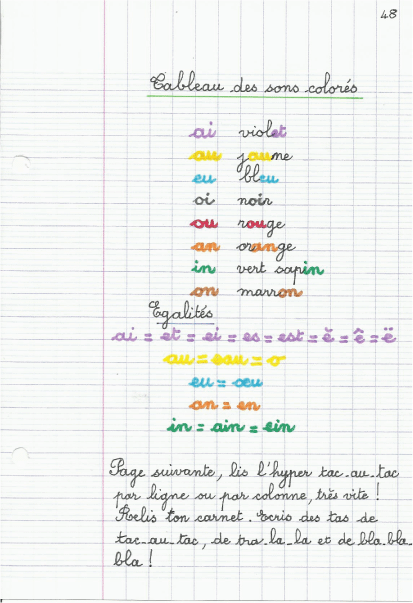 48
Tableau des sons colorés
ai violet
au jaune
eu bleu
oi noir
ou rouge
an orange
in vert sapin
on marron
Egalités
ai = et = ei = es = est = ĕ = ê = ë
au = eau = o
eu = œu
an = en
in = ain = ein
Page suivante, lis l'hyper tac_au_tac
par ligne ou par colonne, très vite !
Relis ton carnet. Ecris des tas de
tac_au_tac, de tra_la_la et de bla_bla_
bla !